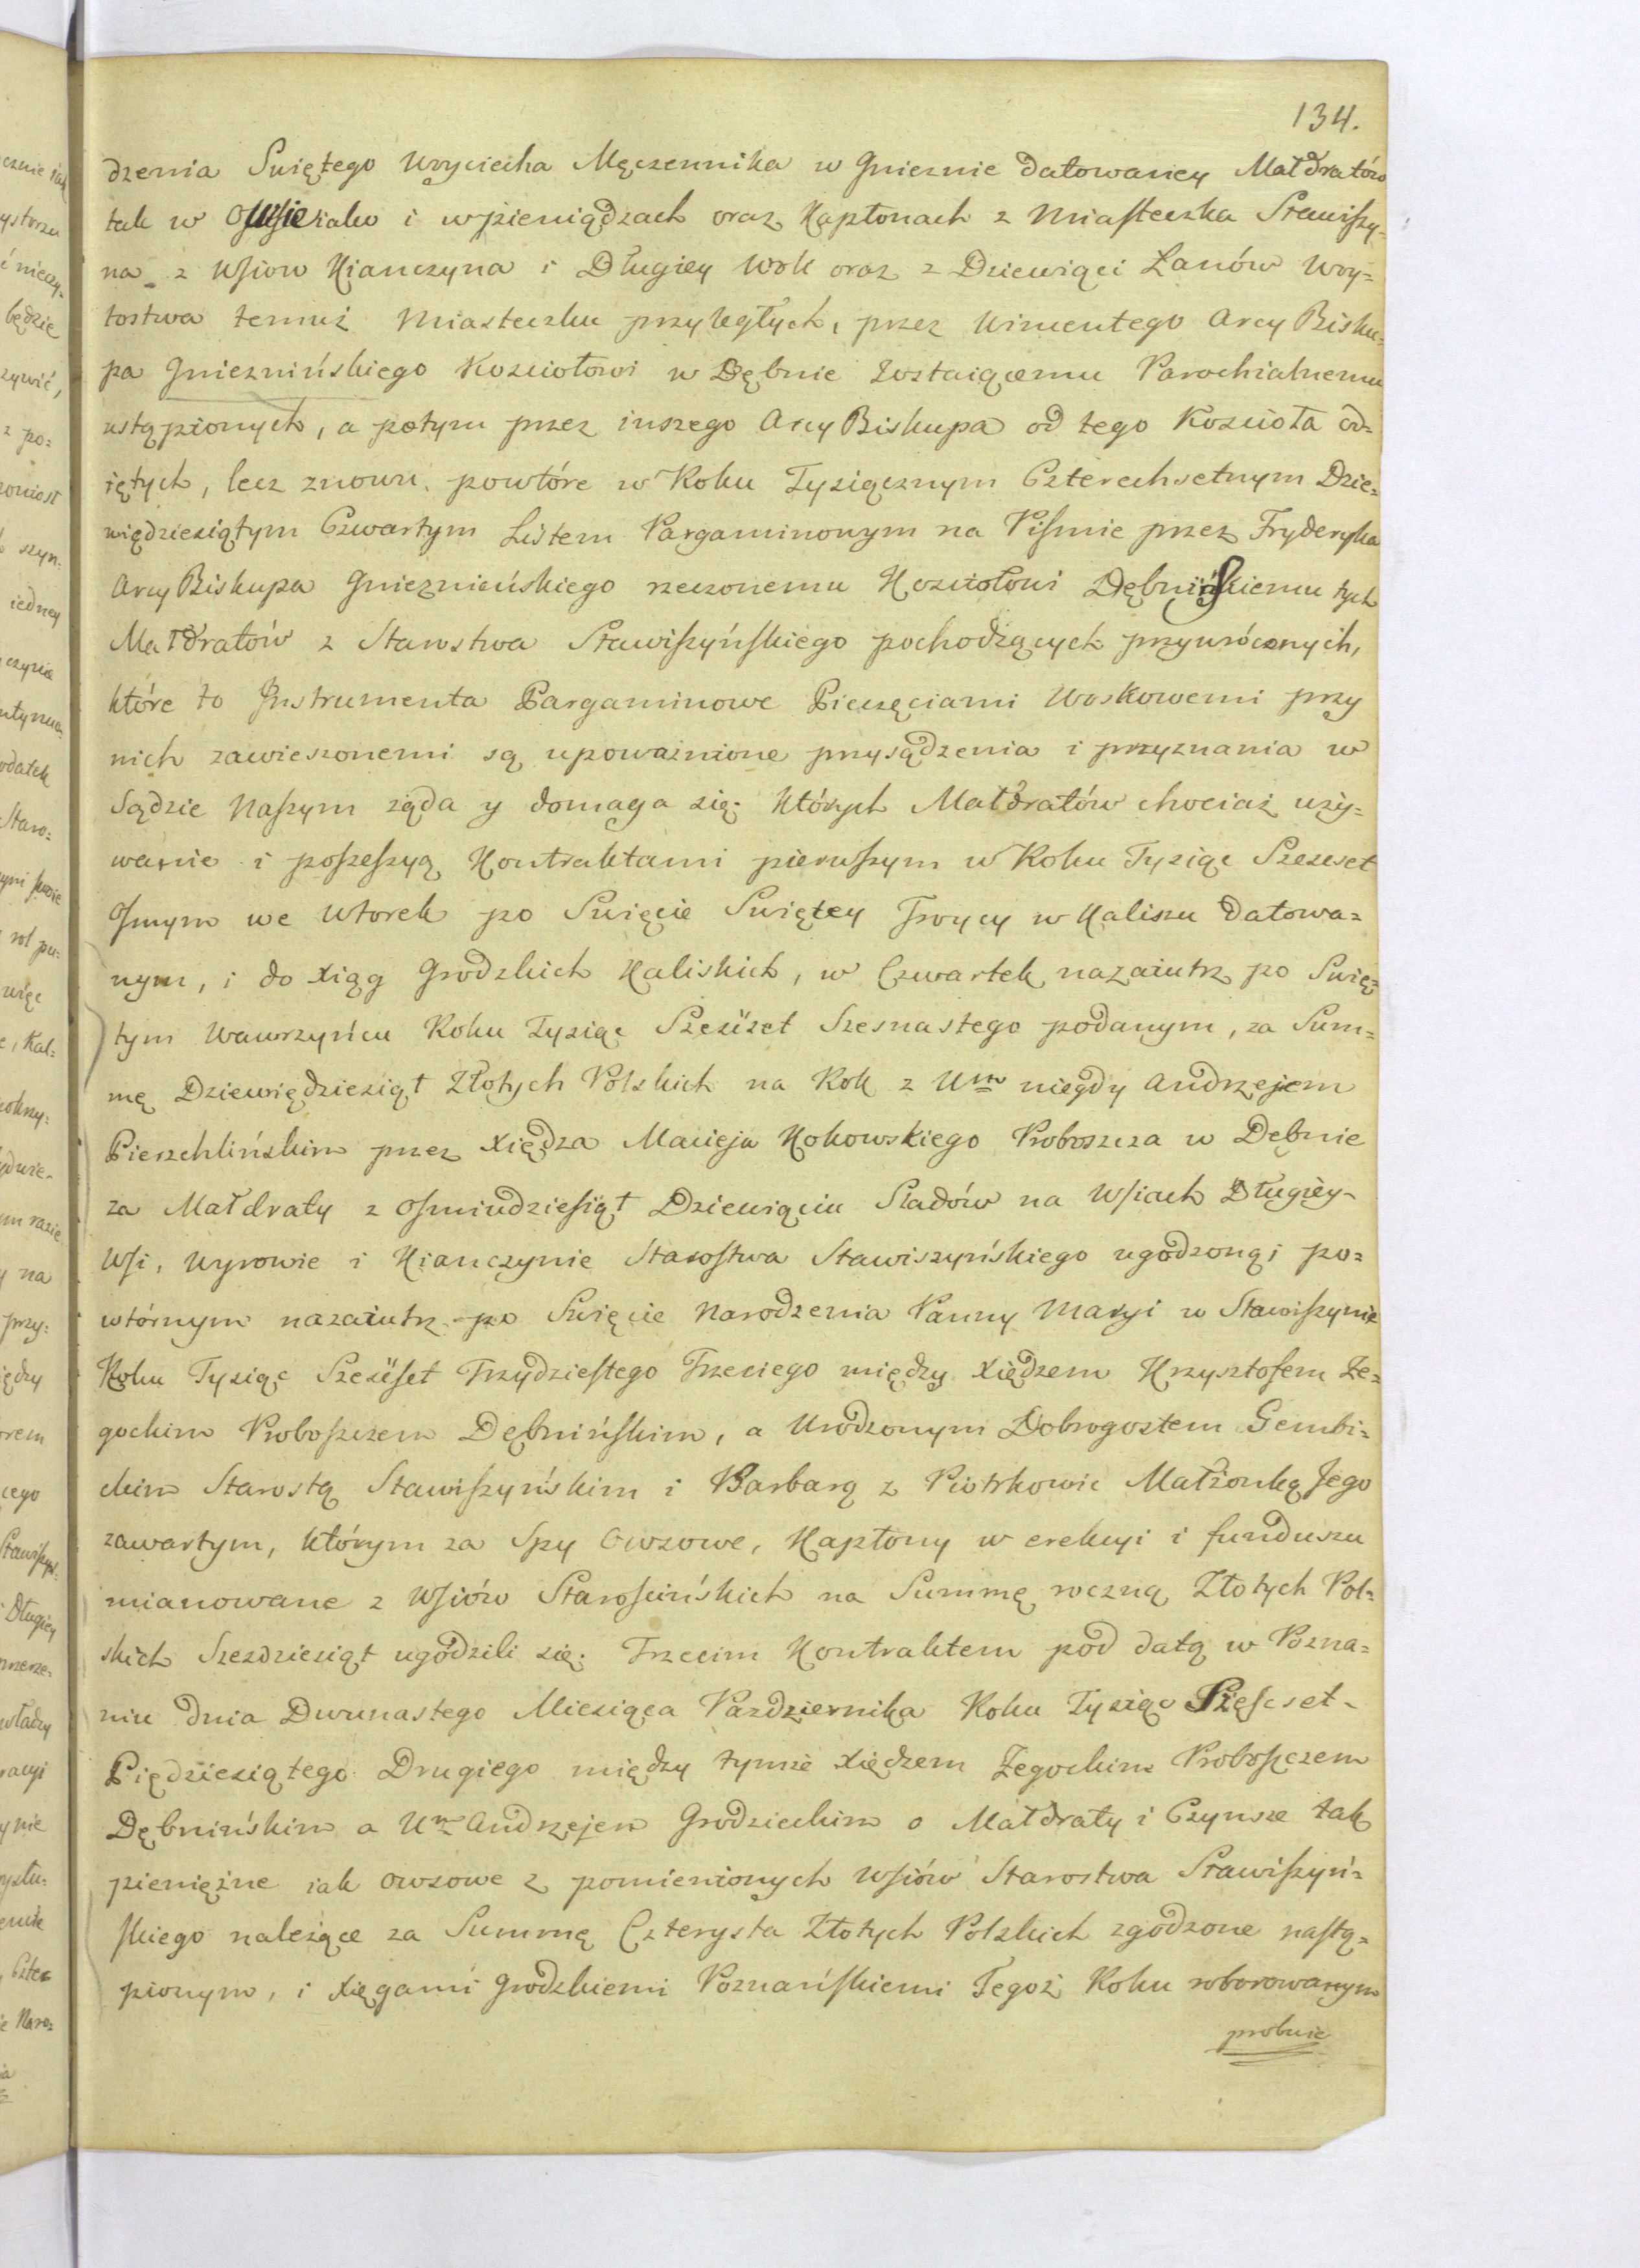 134.
dzenia Swiętego Woyciecha Męczennika w Gnieznie datowaney Małdratów
tak w Owsie iako i w pieniądzach oraz Kapłonach z Miasteczka Stawiszy=
na z Wsiow Kianczyna i Długiey Woli oraz z Dziewiąci Łanów Woy=
tostwa temuż Miasteczku przyległych, przez Wincentego Arcy Bisku=
pa Gnieznińskiego Kosciołowi w Dębnie Zostaiącemu Parochialnemu
ustąpionych, a potym przez inszego Arcy Biskupa od tego Koscioła od=
iętych, lecz znowu powtóre w Roku Tysiącznym Czterechsetnym Dzie=
więdziesiątym Czwartym Listem Pargaminowym na Pismie przez Fryderyka
Arcy Biskupa Gnieznieńskiego rzeczonemu Kosciołowi Dębnińskiemu tych
Małdratów z Starostwa Stawiszyńskiego pochodzących przywróconych,
które to Instrumenta Pargaminowe Pieczęciami Woskowemi przy
nich zawieszonemi są upoważnione przysądzenia i przyznania w
Sądzie Naszym ząda y domaga się. Których Małdratów chociaż uży=
wanie i poszeszyą Kontraktami pierwszym w Roku Tysiąc Szescset
Osmym we Wtorek po Swięcie Swiętey Troycy w Kaliszu datowa=
nym, i do Xiąg Grodzkich Kaliskich, w Czwartek nazaiutrz po Swię=
tym Wawrzyńcu Roku Tysiąc Szesśzet Szesnastego podanym, za Sum=
mę Dziewiędziesiąt Złotych Polskich na Rok z Um niegdy Andrzejem
Pierzchlińskim przez Xiędza Macieja Kokowskiego Proboszcza w Dębnie
za Małdraty z Osmiudziesiąt Dziewiąciu Sladów na Wsiach Długiey-
Wsi, Wyrowie i Kianczynie Starostwa Stawiszyńskiego ugodzoną; po=
wtórnym nazaiutrz po Swięcie Narodzenia Panny Maryi w Stawiszynie
Roku Tysiąc Szesśset Trzydziestego Trzeciego między Xiędzem Krzysztofem Że=
gockim Proboszczem Dębnińskim, a Urodzonym Dobrogostem Gembi=
ckim Starostą Stawiszyńskim i Barbarą z Piotrkowic Małżonką Jego
zawartym, którym za Spy Owsowe, Kapłony w erekcyi i funduszu
mianowane z Wsiów Starościńskich na Summę roczną Złotych Pol=
skich Szesdziesiąt ugodzili się. Trzecim Kontraktem pod datą w Pozna=
niu dnia Dwunastego Miesiąca Pazdziernika Roku Tysiąc Szescset-
Piędziesiątego Drugiego między tymże Xiędzem Żegockim Proboszczem
Dębnińskim a Um Andrzejem Grodzieckim o Małdraty i Czynsze tak
pieniężne iak owsowe z pomienionych Wsiów Starostwa Stawiszyń=
skiego należące za Summę Czterysta Złotych Polskich zgodzone nastą=
pionym, i Xięgami Grodzkiemi Poznańskiemi Tegoż Roku roborowanym
probuie